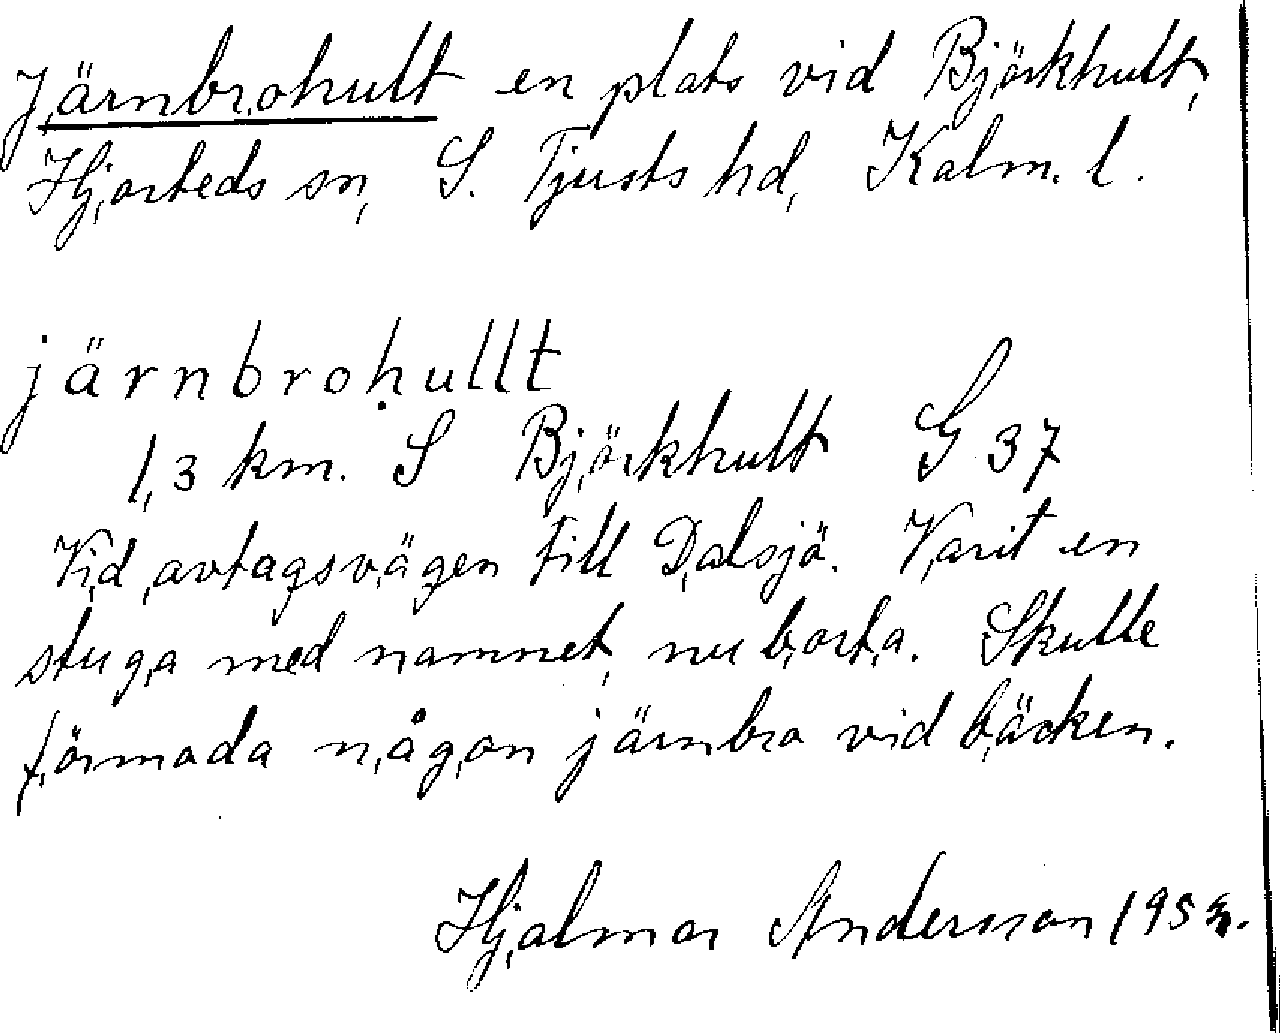 Järnbrohult en plats vid Björkhult,
Hjorteds sn, S. Tjusts hd, Kalm. l.
järnbrohullt
1,3 km. S Björkhult G 37
Vid avtagsvägen till Dalsjö. Varit en
stuga med namnet, nu borta. Skulle
förmoda någon järnbro vid bäcken.
Hjalmar Andersson